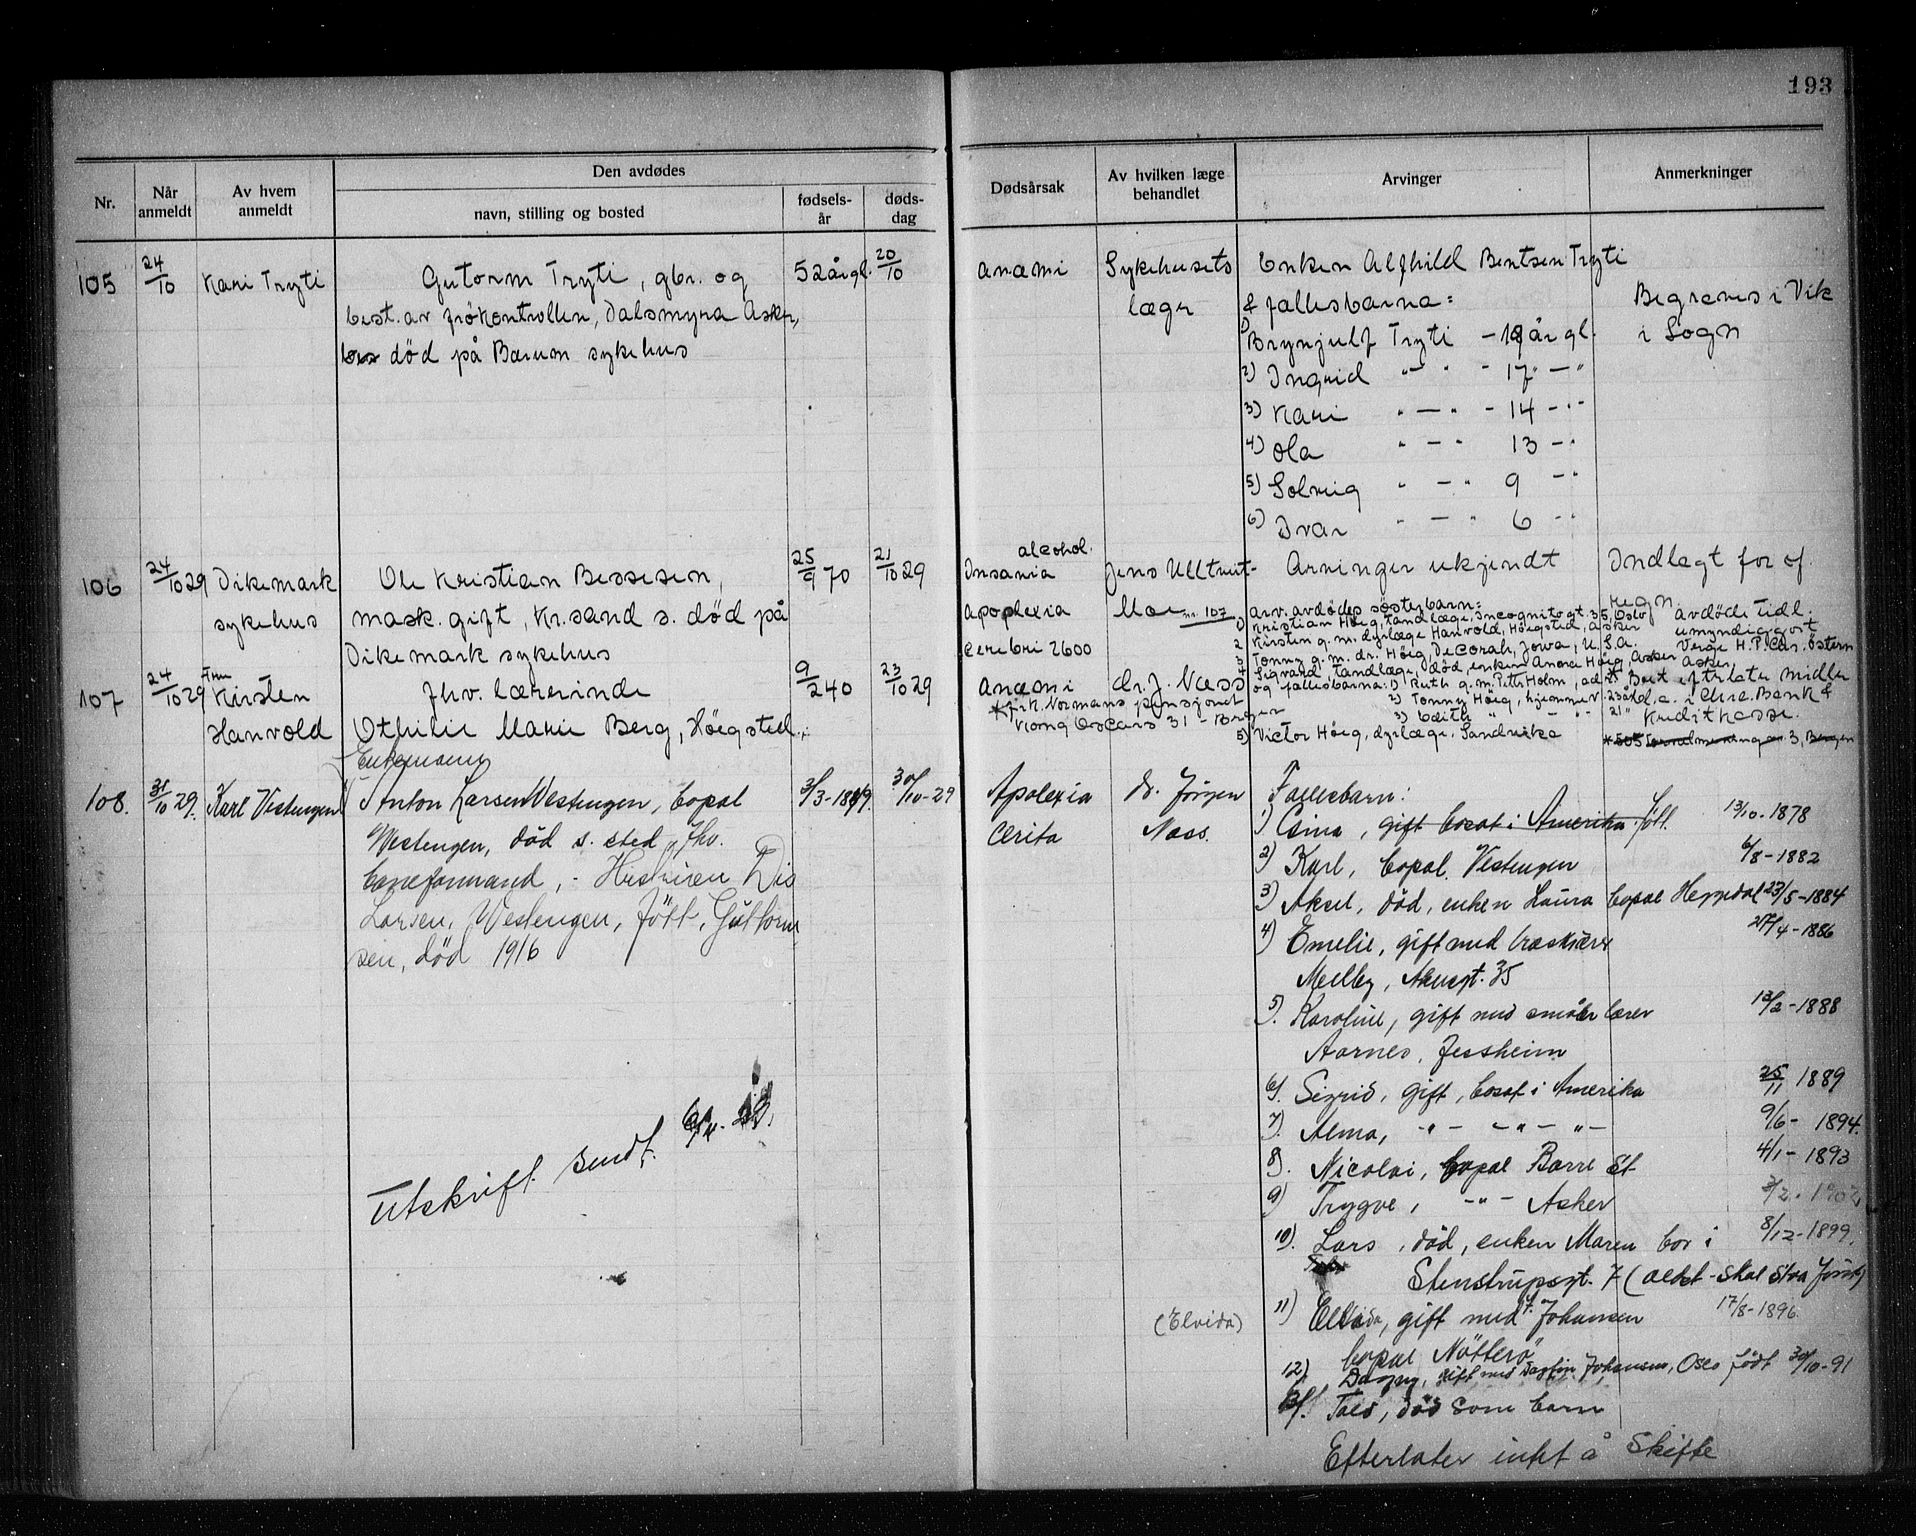 193
Nr.
Når anmeldt
Av hvem anmeldt
Den avdødes
navn, stilling og bosted
fødselsår
dødsdag
Dødsårsak
Av hvilken læge behandlet
Arvinger
Anmerkninger
105
24/10
Kari Tryti
Gutorm Tryti, gbr. og
best. av frökontrollen, Dalsmyra Asker,
død på Bærum sykehus
52 år gl.
20/10
anæmi
Sykehusets
læge
Enken Alfhild Bentsen Tryti
& fællesbarna:
1) Brynjulf Tryti - 18 år gl.
2) Ingrid " - " - 17 " - "
3) Kari " - " - 14 - " -
4) Ola " - " 13 - "
5) Solveig " - " 9 - "
6) Ivar " - " 6 - "
Begraves i Vik
i Sogn
106
24/10 29
Dikemark
sykehus
Ole Kristian Bessesen,
mask. gift, Kr.sand s. død på
Dikemark sykehus
25/9 70
21/10 29
alcohol.
Insania
apoplexia
cerebri 2600
Jens Ulltveit-
Moe
Arvinger ukjendt
Indlagt for of.
regn.
107
24/10 29
Fru
Kirsten
Hanvold
fhv. lærerinde
Othilie Marie Berg, Höigsted
9/2 40
23/10 29
Anæmi
dr. J. Næss
nr. 107 arv. avdødes søsterbarn:
1) Kristian Höig, tandlæge, Incognitogt. 35, Oslo
2 Kirsten g.m. dyrlæge Hanvold, Höigsted, Asker
3 Tonny g.m. dr. Höig, Decorah, Jowa, U.S.A.
4 Sigvard, tandlæge, død, enken Anora Höig, Asker
og fællesbarna: 1) Ruth g.m. Petter Holm, adr.
*frk. Normans pensjonat
Kong Oscars 31 - Bergen
2) Tonny Höig, hjemmev. 23 år
3) Edith " - " - 21 "
5) Victor Höig, dyrlæge, Sandvika
avdøde tidl.
umyndiggjort
Verge H.P. Østern
Asker
Boet efterlater midler
bl.a. i Chra. Bank &
Kreditkasse.
3, Bergen
108.
31/10 29.
Karl Vestengen
Enkemann
Anton Larsen Vestengen, bopal
Vestengen, död s. sted, fhv.
baneformand, - Hustruen Dis
Larsen, Westengen, fött, Guttorm
sen, död 1916
3/3-1849.
30/10-29
Apolexia
Cerita
dr. Jörgen
Næss.
Fællesbarn:
1) Gina, gift bosat i Amerika. 13/10-1878
2) Karl, bopal. Vestengen 6/8-1882
3) Aksel, död, enken Laura bopal Heggedal 23/5-1884
4) Emelie, gift med træskjærer 27/4-1886
Melby, Akersgt. 35
5). Karoline, gift med smaabr lærer 13/2-1888
Aarnes, Jessheim
6). Sigrid, gift, bosat i Amerika 25/11 1889
7). Alma, - " - - " - " - 9/6- 1894.
8). Nicolai, bopal Barre St 4/1-1893
9) Trygve, - " - Asker 3/2-1902
10). Lars, död, enken Maren bor i 8/12-1899.
Stenstrupsgt. 7 (
(Elvida)
11) Elvida, gift med Johansen 17/8-1896
bopal Nötterö
12) Dagny, gift med Johansen, Oslo født 30/10-91
13). död som barn
Efterlater intet å Skifte
Utskrift sendt.